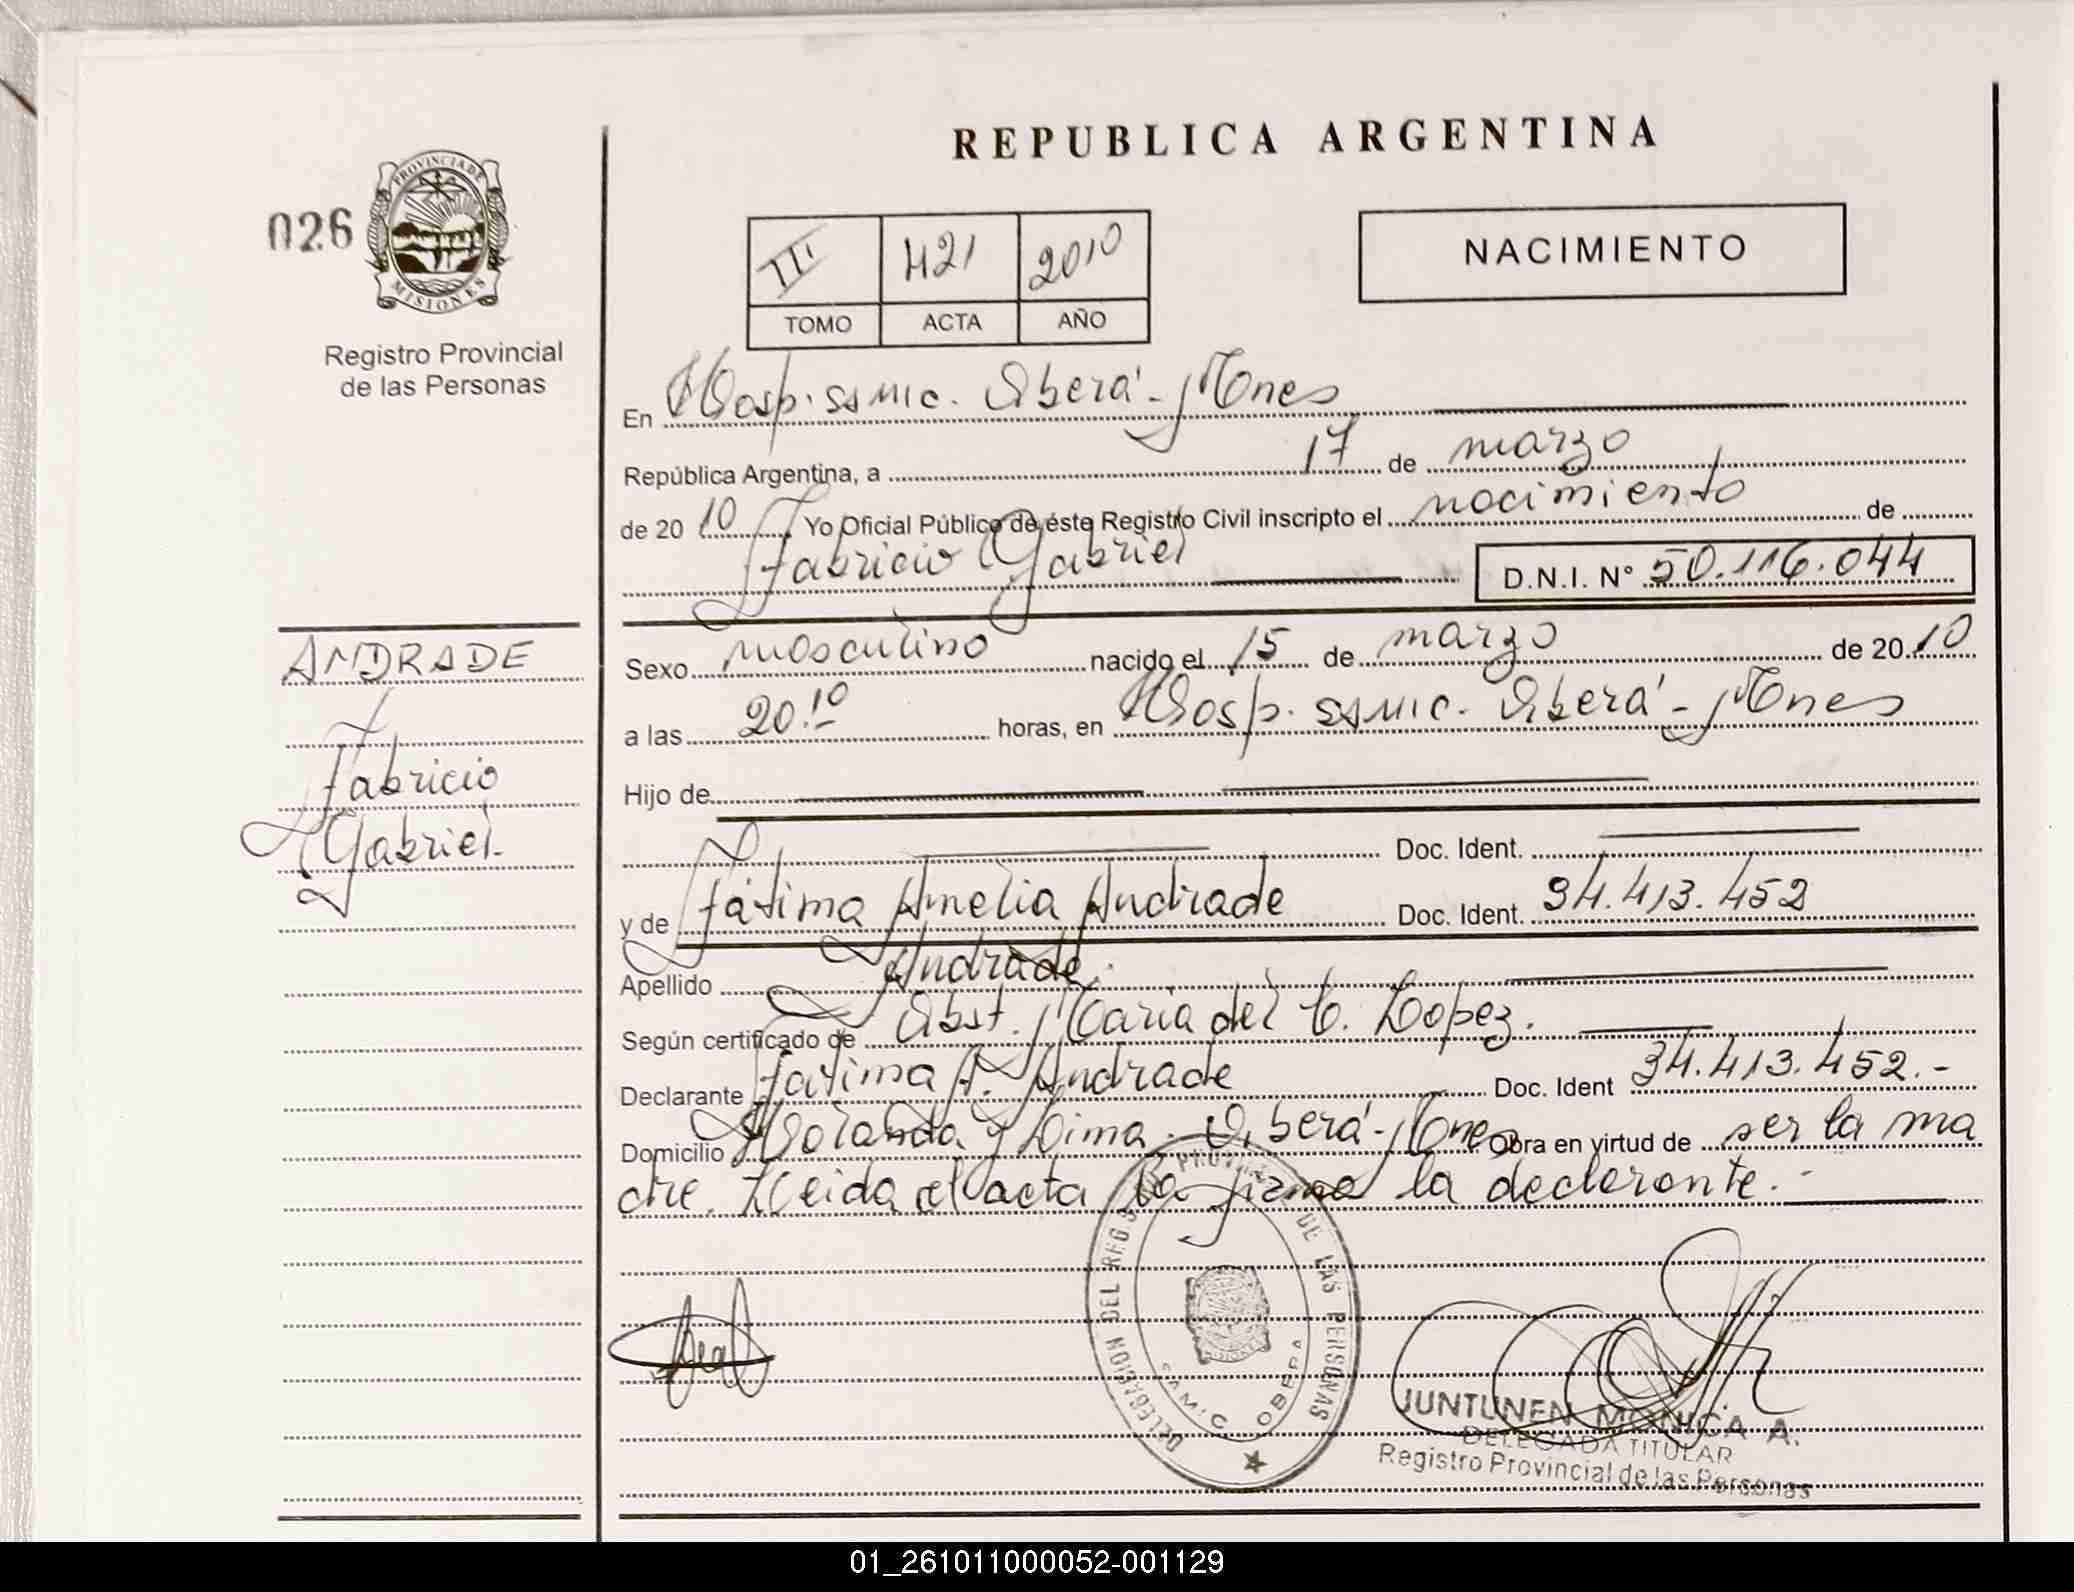 REPUBLICA ARGENTINA
026
PROVINCIA DE
MISIONES
Registro Provincial
de las Personas
III 421 2010
TOMO ACTA AÑO
NACIMIENTO
En Hosp. SAMIC. Oberá - Mnes
República Argentina, a 17 de marzo
de 20 10 Yo Oficial Público de éste Registro Civil inscripto el nacimiento de
Fabricio Gabriel D.N.I. N° 50.116.044
ANDRADE
Fabricio
Gabriel.
Sexo masculino nacido el 15 de marzo de 20 10
a las 20.10 horas, en Hosp. SAMIC. Oberá - Mnes
Hijo de
Doc. Ident.
y de Fátima Amelia Andrade Doc. Ident. 34.413.452
Apellido Andrade.
Según certificado de Obst. Maria del C. Lopez.
Declarante Fatima A. Andrade Doc. Ident 34.413.452.-
Domicilio y Lima. Oberá - Mnes Obra en virtud de ser la ma
dre. Leida el acta la firma la declarante.-
DELEGACION DEL REG. PROVINCIAL DE LAS PERSONAS
SAMIC OBERA
JUNTUNEN MONICA A.
DELEGADA TITULAR
Registro Provincial de las Personas
01_261011000052-001129